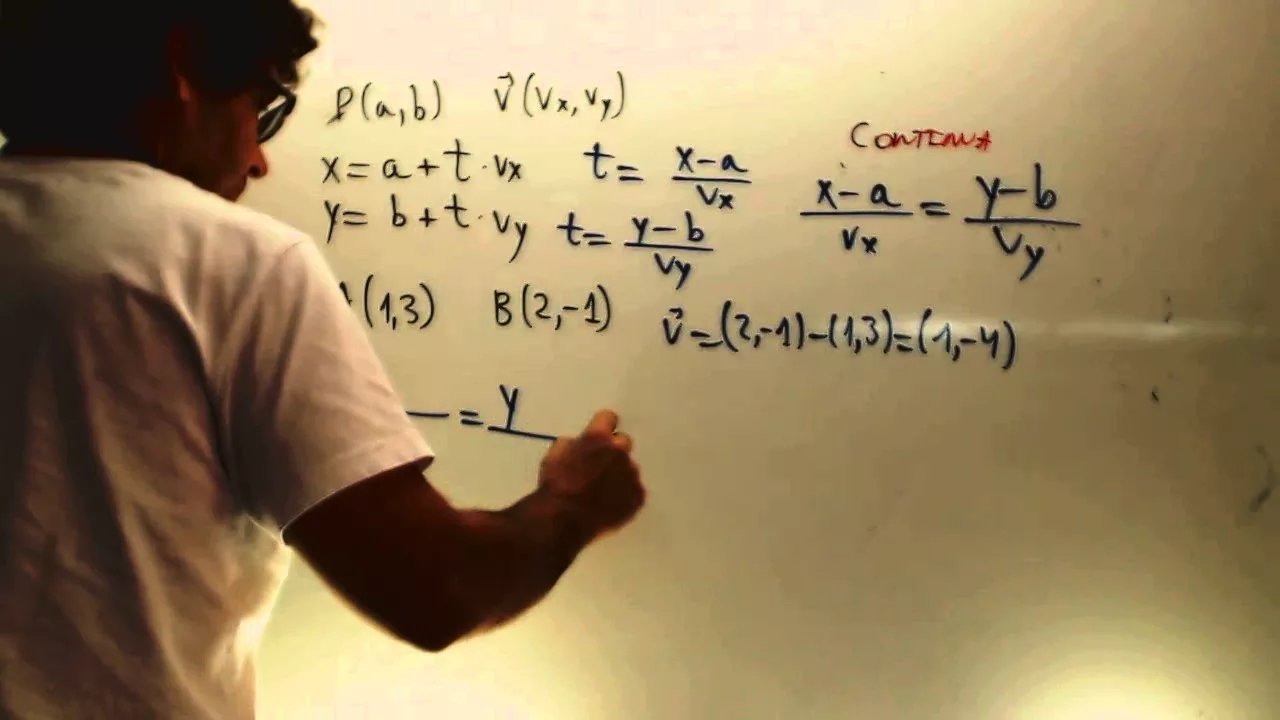 P(a,b) v⃗(vx,vy)
CONTINUA
x=a+t·vx t= x-a/vx x-a/vx = y-b/vy
y=b+t·vy t= y-b/vy
(1,3) B(2,-1) v⃗=(2,-1)-(1,3)=(1,-4)
— = y/